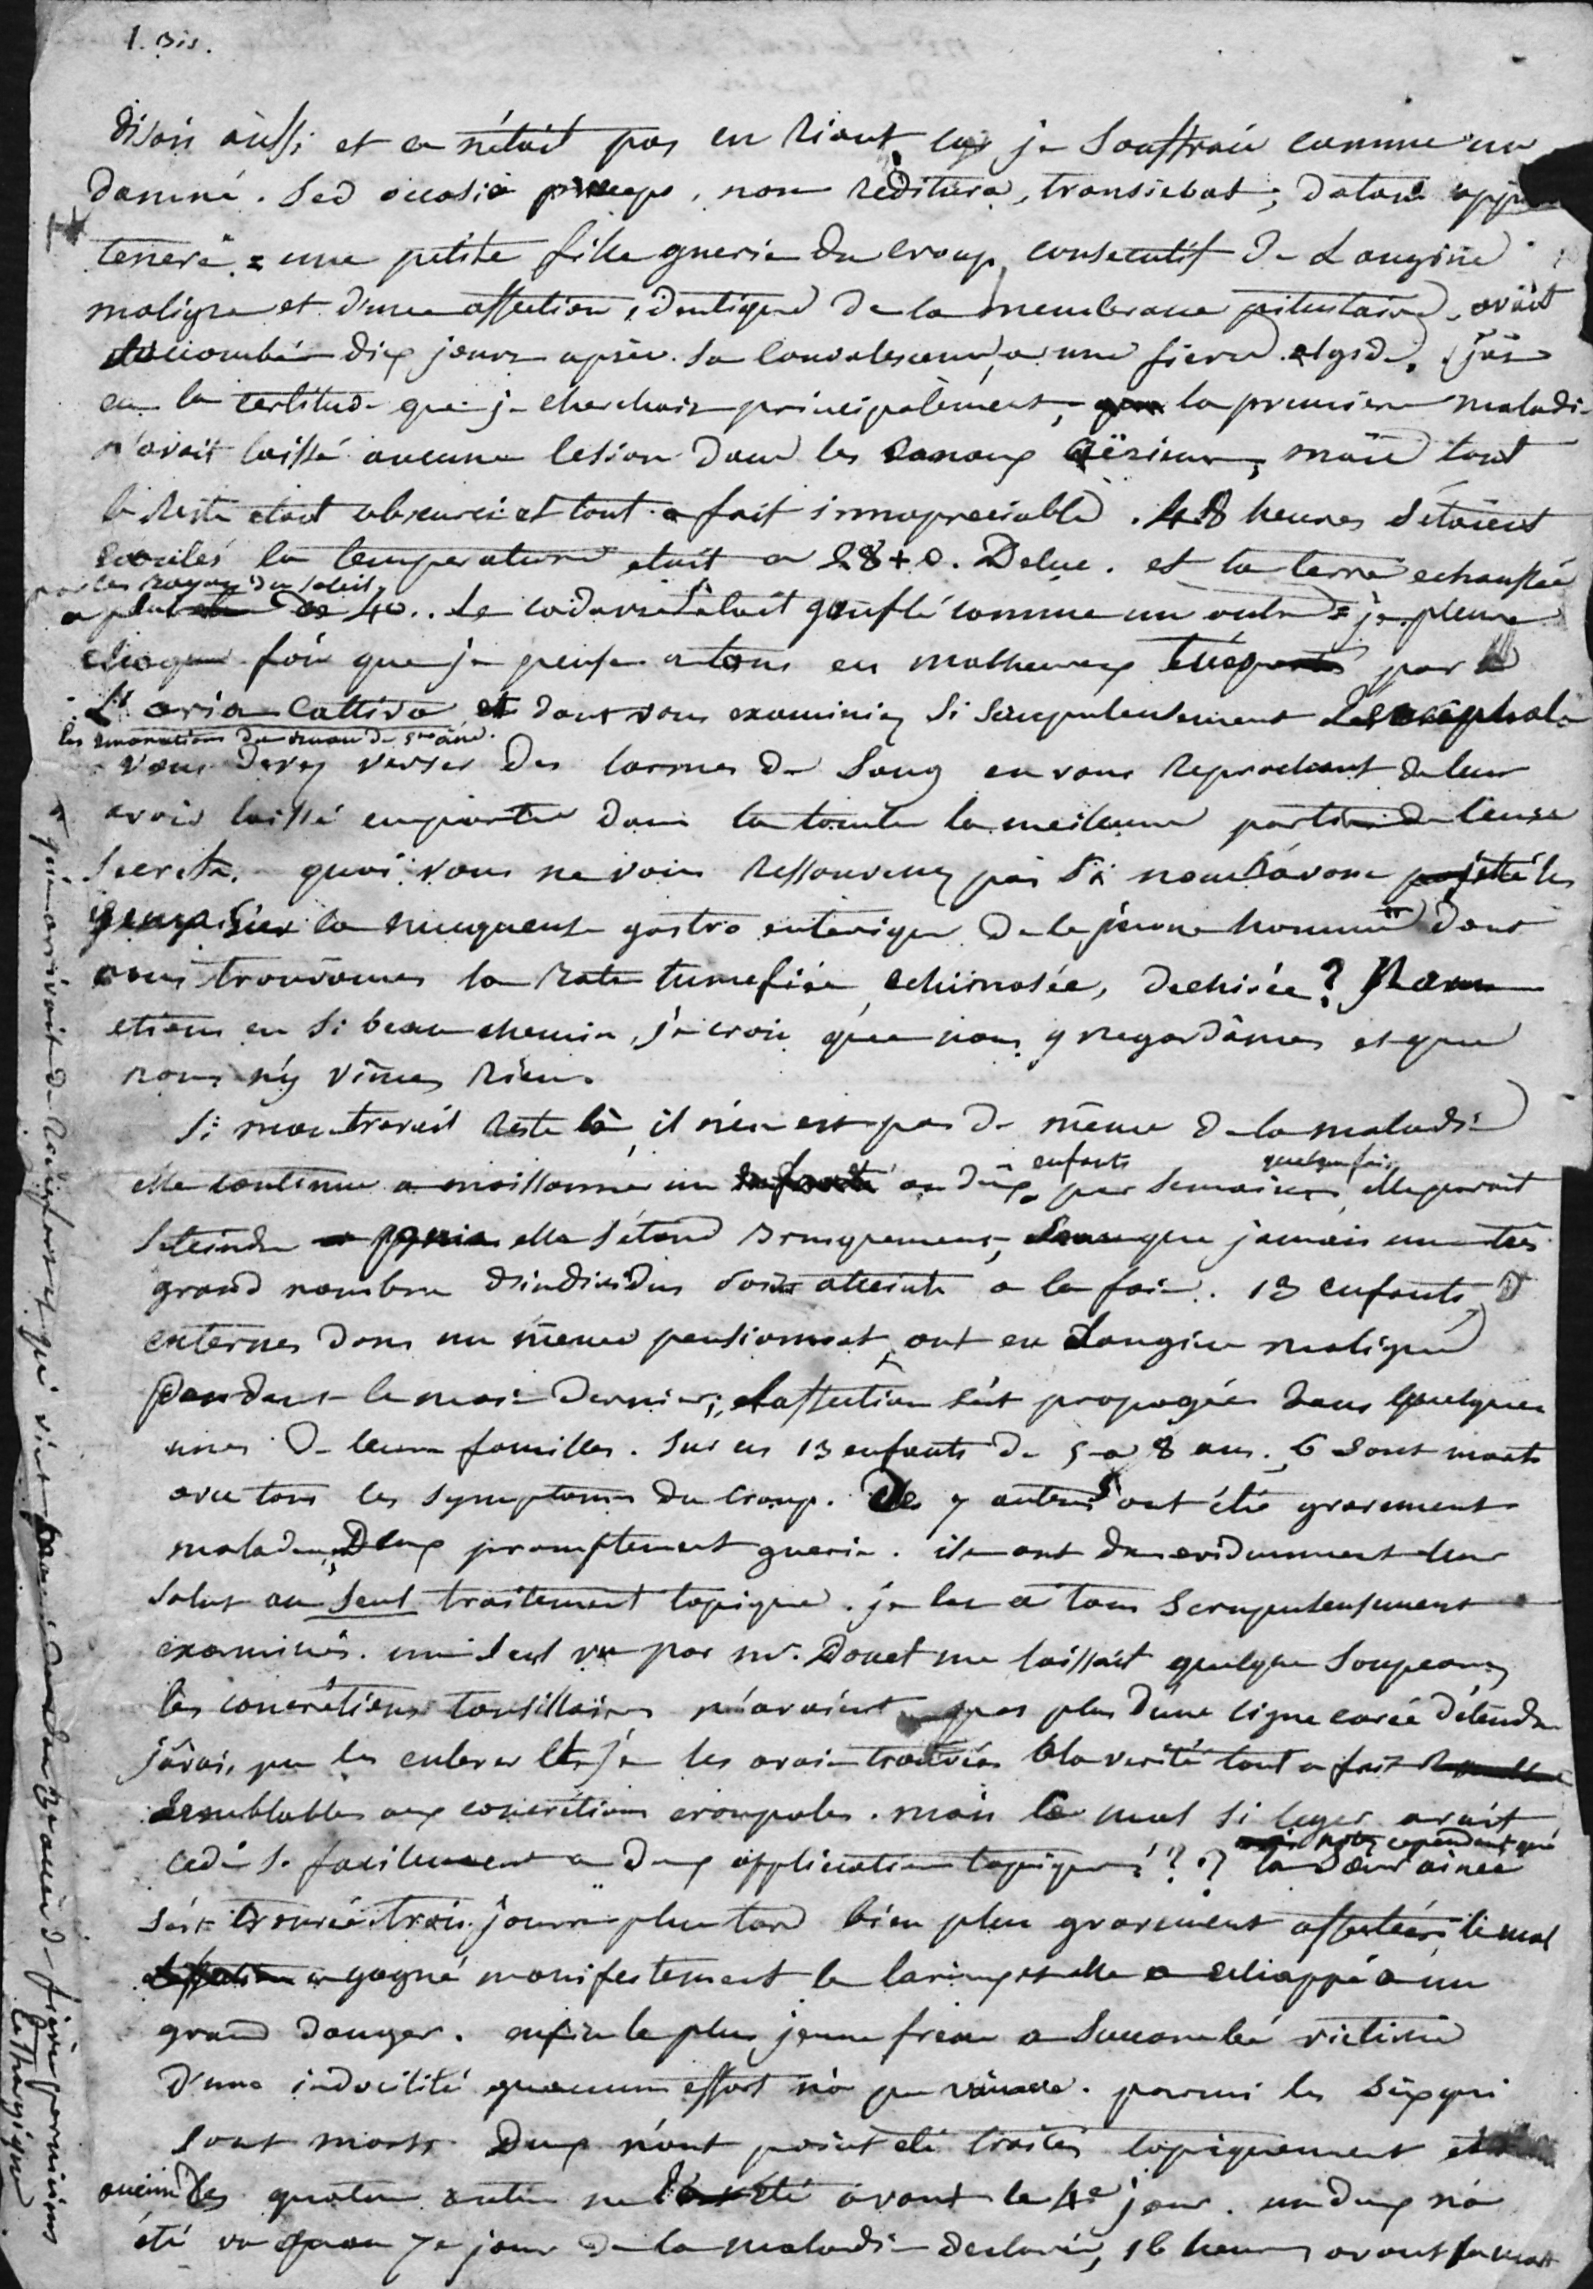 1. Bis.
disois aussi et ce n'étoit pas en riant car je souffrois comme un
damné. Sed occasio preceps, non reditura, transiebat;
une petite fille guerie du croup consecutif de L'angine
maligne et d'une affection identique de la membrane pituitaire, avait
succombé dix jours après sa convalescence, a une fievre algide. j'ai
eu la certitude que je cherchois principalement, que la premiere maladie
n'avait laissé aucune lesion dans les canaux aëriens, mais tout
le reste etoit obscurci et tout a fait innapreciable. 48 heures s'étoient
ecoulés la temperature etoit a 28 + 0. Deluc. et la terre echauffée
par les rayons du soleil
a plus de 40.. Le cadavre etoit gonflé comme un outre = je pleure
chaque fois que je pense a tous ces malheureux tués par
L'aria cattiva et dont vous examiniez si scrupuleusement L'encephale
les emanations du
vous devez verser des larmes de sang en vous reprochant de leur
avoir laissé emporter dans la tombe la meilleure partie de leurs
secrets. quoi vous ne vous ressouvenez pas si nous avons jetté les
yeux sur la muqueuse gastro enterique de ce jeune homme # dont
nous trouvames la rate tumefiée echimosée, dechirée? Nous
etions en si beau chemin, je crois que nous y regardâmes et que
nous n'y vîmes rien.
Si mon travail reste là, il n'en est pas de même de la maladie
elle continue a moissonner un ou deux enfants par semaine, quelquefois elle paroit
s'eteindre elle s'étend brusquement, sans que jamais un très
grand nombre d'individus soit atteints a la fois. 13 enfants
externes dans un même pensionnat ont eu L'angine maligne
pendant le mois dernier; L'affection s'est propagée dans quelques
unes de leurs familles. Sur ces 13 enfants de 5 a 8 ans. 6 sont morts
avec tous les symptomes du croup. Des 7 autres 5 ont été gravement
malades, Deux promptement gueris. ils ont du evidemment leur
salut au seul traitement topique. je les ai tous scrupuleusement
examinés. un seul vu par mr. Douet me laissait quelque soupçons,
les concrétions tonsillaires n'avaient pas plus d'une ligne carée d'étendue
j'avais pu les enlever et je les avois trouvées a la verité tout a fait
semblables aux concrétions croupales. mais le mal si leger avait
cedé si facilement a deux applications topiques!?.? notez cependant que la sœur ainée
s'est trouvée trois jours plus tard bien plus gravement affectée; le mal
a gagné manifestement le larinx et elle a echappé a un
grand danger. enfin le plus jeune frere a succombé victime
d'une indocilité qu'aucun effort n'a pu vaincre. parmi les six qui
sont morts Deux n'ont point été traités topiquement et
aucun des quatre autres ne l'a été avant le 4e jour. un deux n'a
été vu qu'au 7e jour de la maladie declarée, 16 heures avant sa mort
# qui arrivoit de Rochefort et qui vient de fievre pernicieuse
lethargique